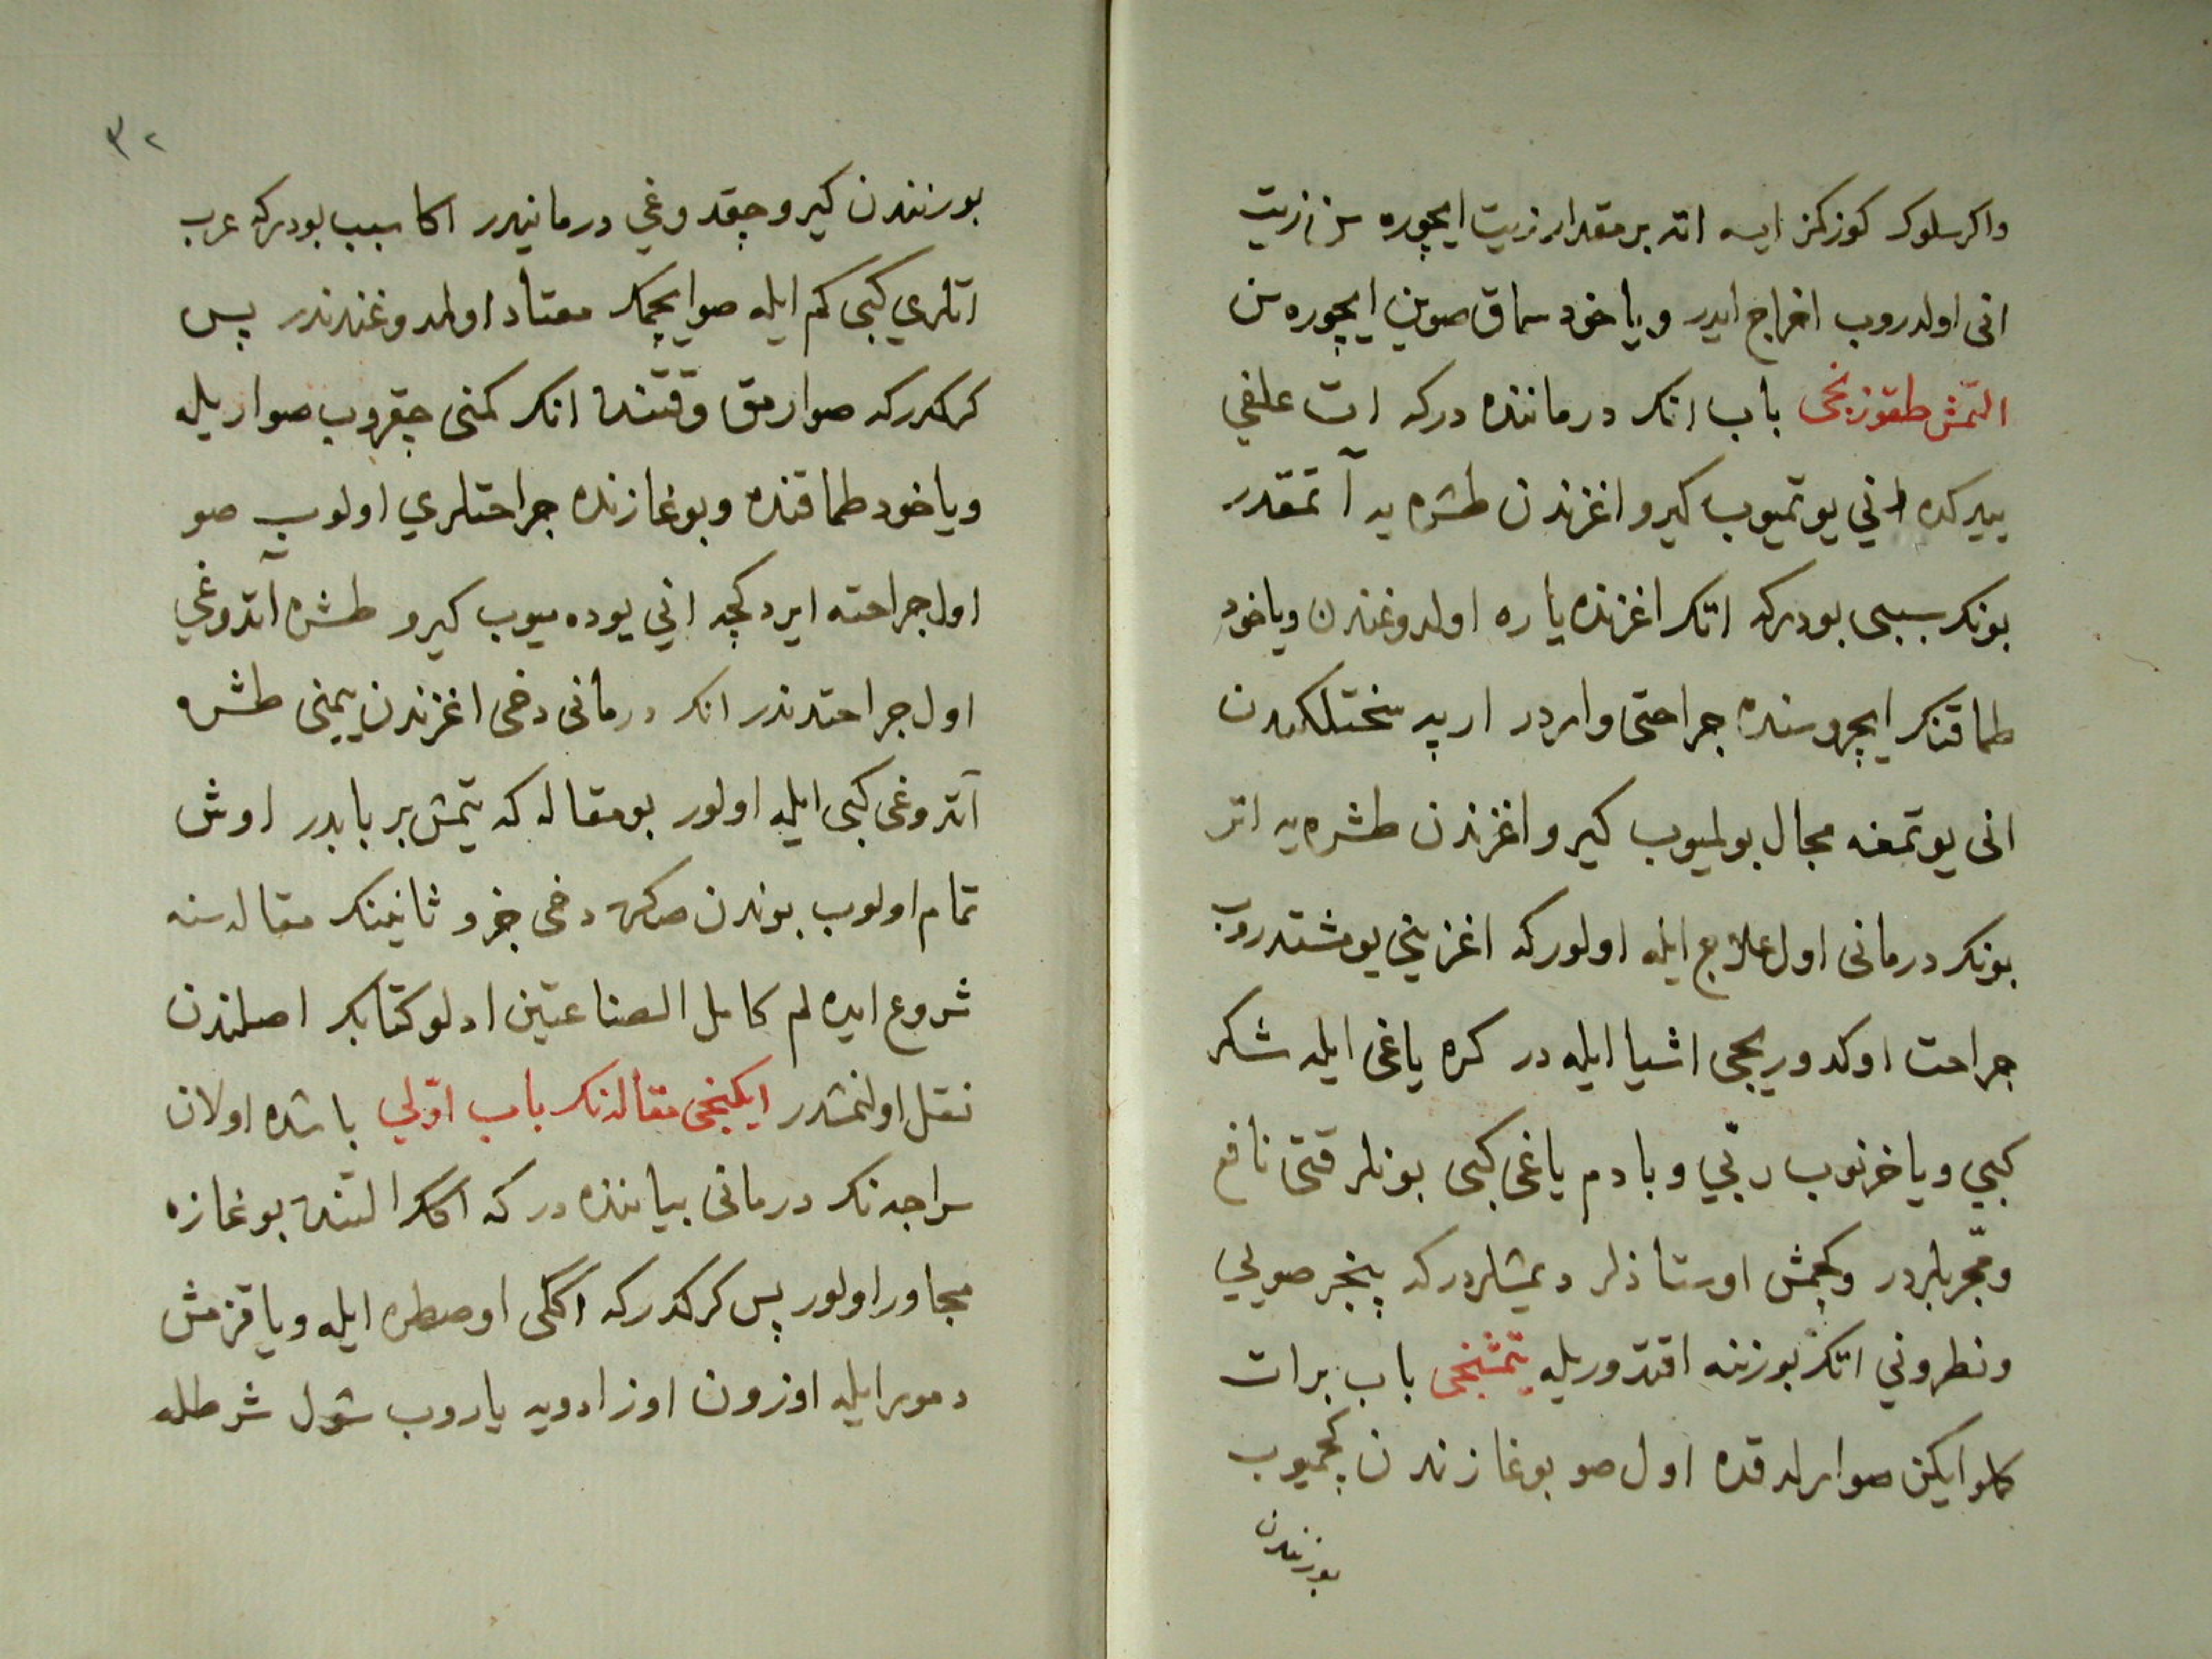 واكر سلوك كوزكز ايسه اته بر مقدار زيت ايچوره سن زيت
انى اولدروب اخراج ايدر وياخود سماق صوين ايچوره سن
التمش طقوزنجى باب انك درماننده دركه ات علفي
ييركده اني يوتميوب كيرو اغزندن طشره يه آتمقدر
بونك سببى بودركه اتك اغزنده ياره اولدوغندن وياخود
طماقنك ايچروسنده جراحتى واردر ارپه سختلكندن
انى يوتمغه مجال بولميوب كيرو اغزندن طشره يه اتر
بونك درمانى اول علاج ايله اولوركه اغزيني يومشتدروب
جراحت اوكدوريجى اشيا ايله در كره ياغى ايله شكر
كبي ويا خرنوب ربّي وبادم ياغى كبى بونلر قتى نافع
ومجربلردر وكچمش اوستاذلر ديمشلردركه پنجر صويي
ونطروني اتك بورننه اقتدوريله يتمشنجى باب برات
كلو ايكن صوارلدقده اول صو بوغازندن كچميوب
بورنندن
٣٢
بورنندن كيرو چقدوغي درمانيدر اكا سبب بودركه عرب
اتلري كبى كم ايله صو ايچمك معتاد اولدوغندندر پس
كركدركه صوارمق وقتنده انك كمنى چقروب صواريله
وياخود طماقنده وبوغازنده جراحتلري اولوب صو
اول جراحته ايردكچه اني يوده ميوب كيرو طشره آتدوغي
اول جراحتدندر انك درمانى دخى اغزندن يمينى طشره
آتدوغى كبى ايله اولور بو مقاله كه يتمش بر بابدر اوش
تمام اولوب بوندن صكره دخى جزو ثانينك مقاله سنه
شروع ايده لم كامل الصناعتين ادلو كتابك اصلندن
نقل اولنمشدر ايكنجى مقاله نك باب اوّلي باشده اولان
سراجه نك درمانى بياننده دركه اكك التنده بوغازه
مجاور اولور پس كركدركه اككى اوصطره ايله ويا قزمش
دمور ايله اوزون اوزادويه ياروب شول شرطله